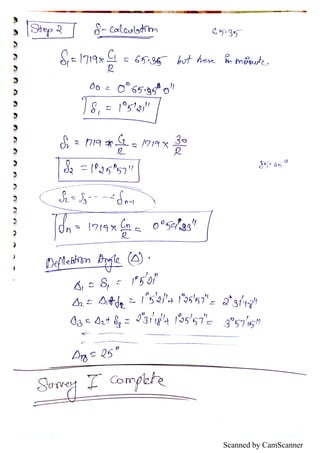 Step 2 δ - Calculation 65.35
δ₁ = 1719 × C₁/R = 65.35 but here in minute.
Do = 0° 65.35' 0"
δ₁ = 1°5'21"
δ₂ = 1719 × C/R = 1719 × 30/R
δ₂ = 1°25'57"
δ₂ = δ₃ - - - - δn-1
δn = 1719 × Cn/R =
Deflection Angle (Δ) .
Δ₁ = δ₁ = 1°5'21"
Δ₂ = Δ₁+δ₂ = 1°5'21" + 1°25'57" = 2°31'18"
Δ₃ = Δ₂ + δ₃ = 2°31'18" + 1°25'57" = 3°57'15"
= 25°
Survey I Complete
Scanned by CamScanner